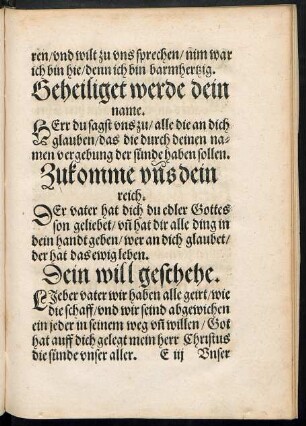 ren/vnd wilt zu vns sprechen/nim war
ich bin hie/denn ich bin barmhertzig.
Geheiliget werde dein
name.
HErr du sagst vns zu/alle die an dich
glauben/das die durch deinen na-
men vergebung der sünde haben sollen.
Zukomme vñs dein
reich.
DEr vater hat dich du edler Gottes
son geliebet/vñ hat dir alle ding in
dein handt geben/wer an dich glaubet/
der hat das ewig leben.
Dein will geschehe.
LIeber vater wir haben alle geirt/wie
die schaff/vnd wir seind abgewichen
ein jeder in seinem weg vñ willen/Got
hat auff dich gelegt mein herr Christus
die sünde vnser aller. E iij Vnser